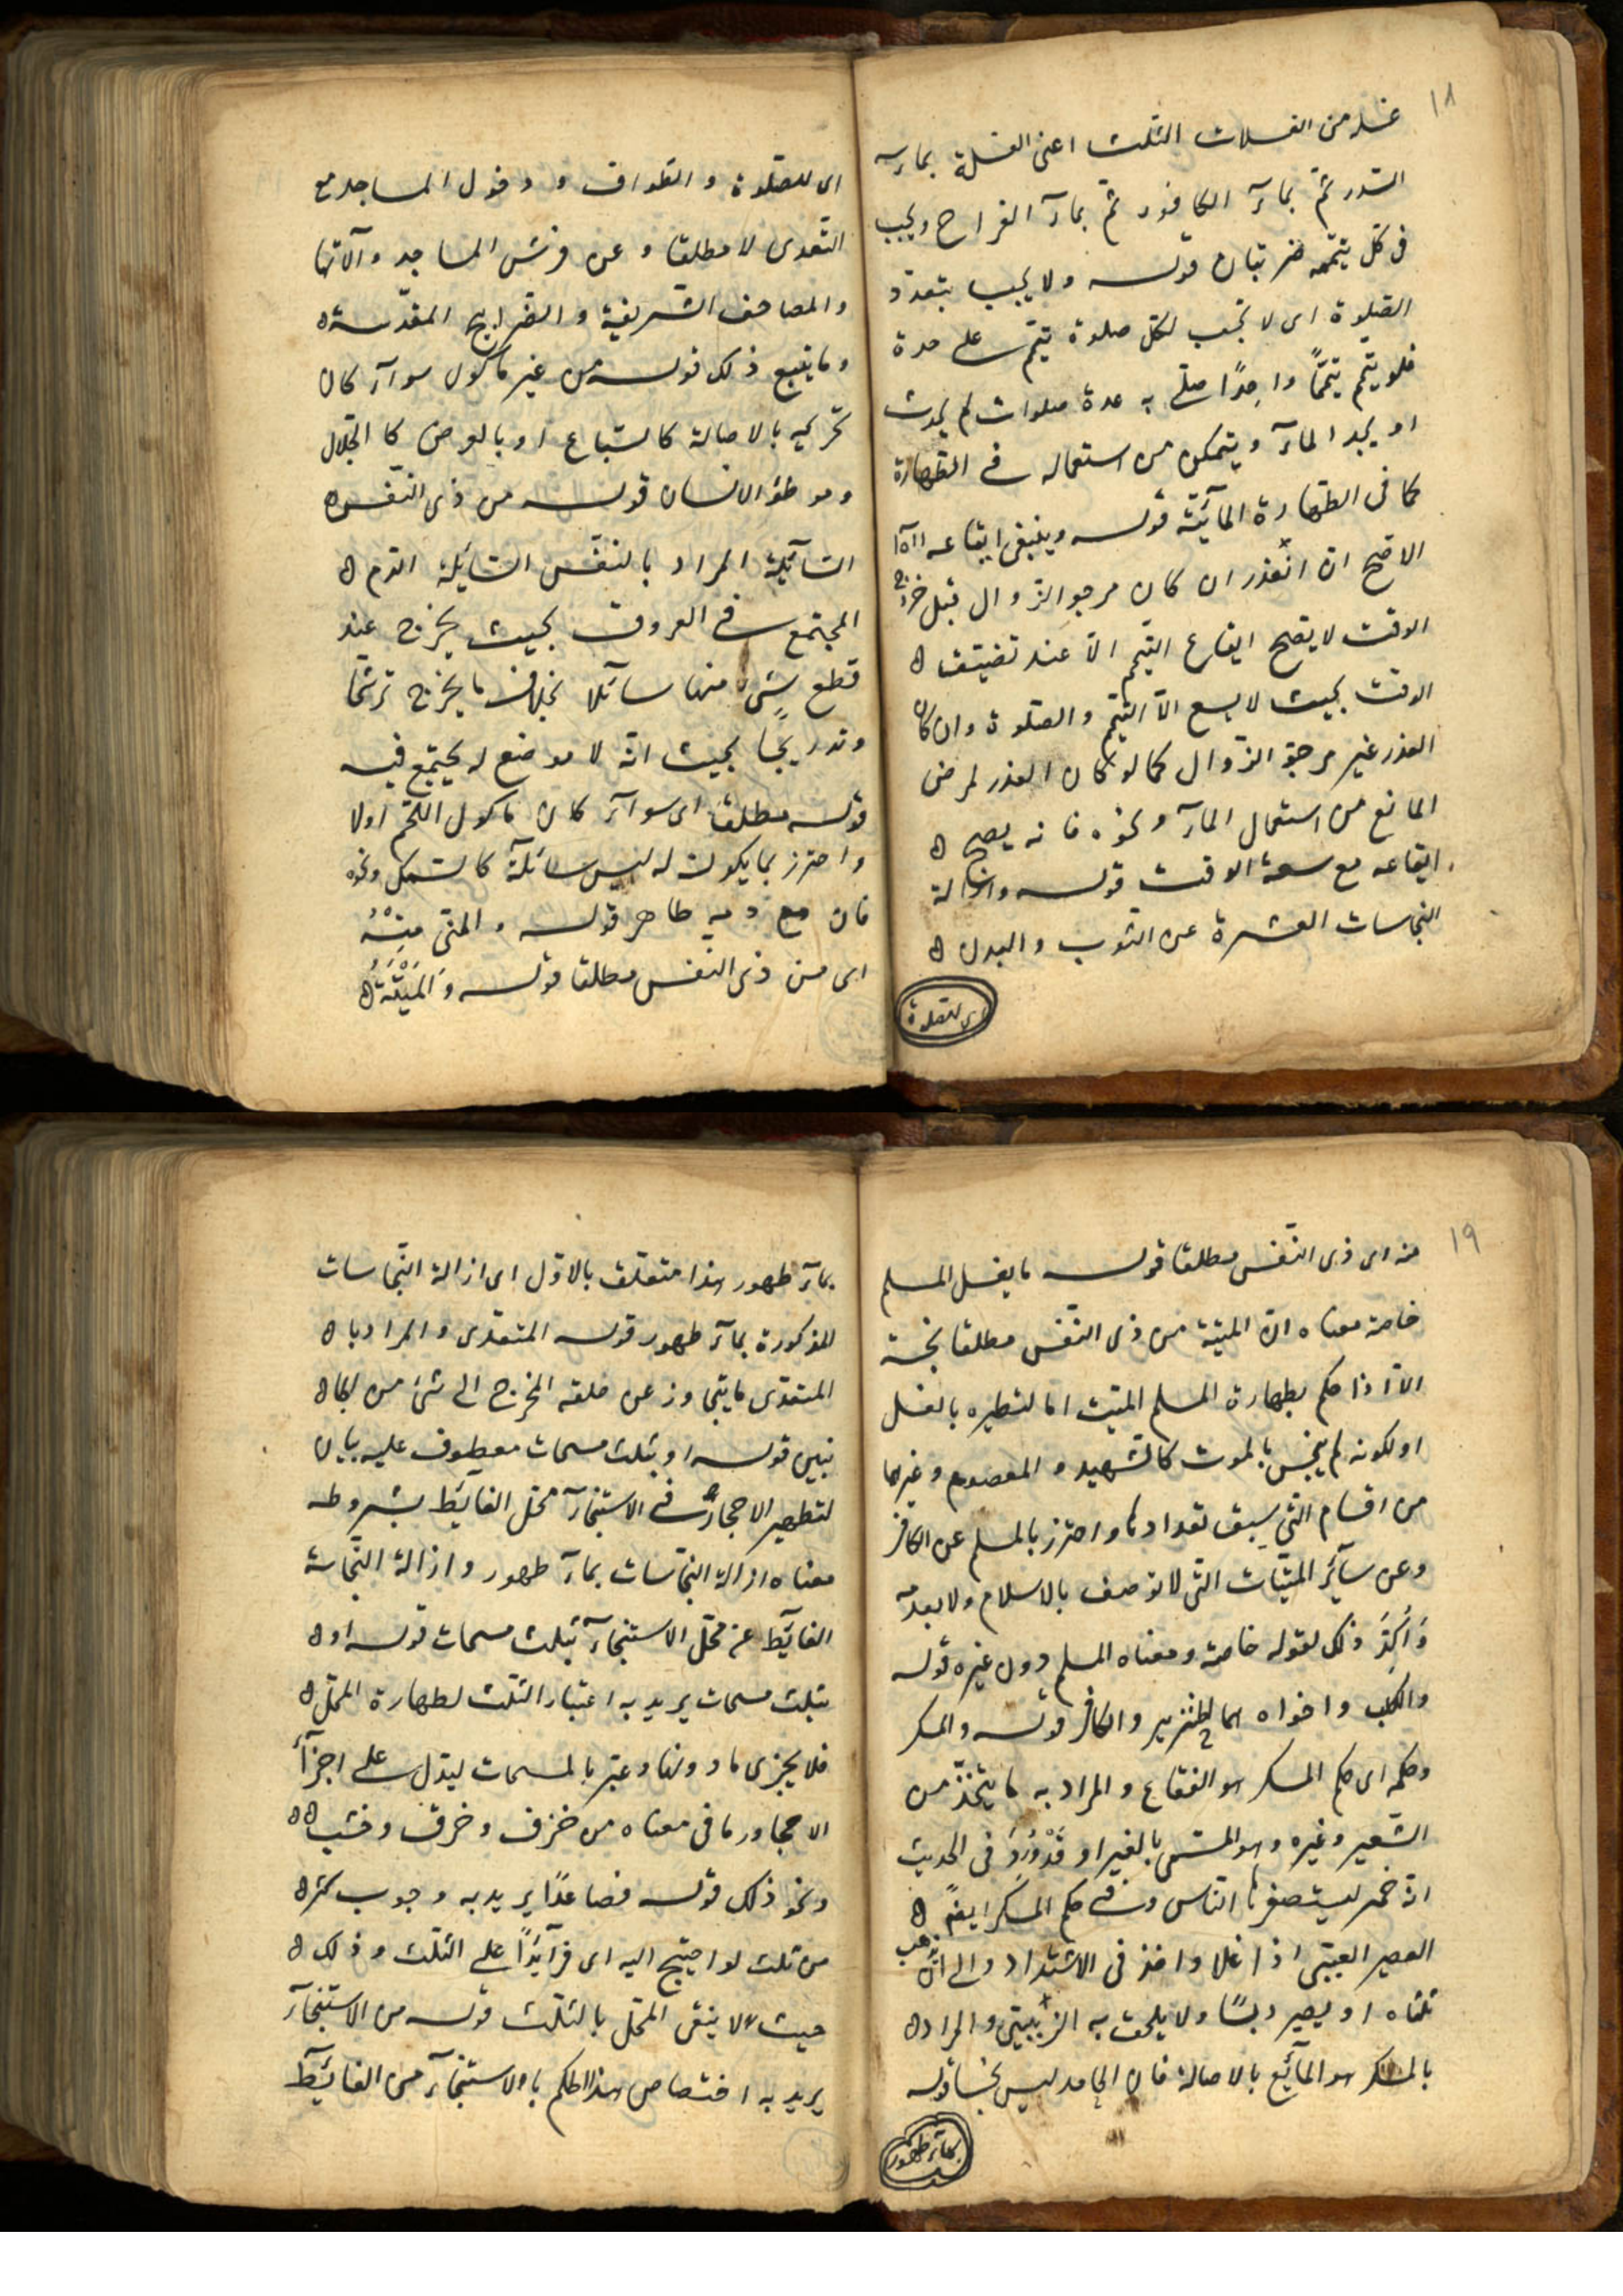 ١٨
غسله من الغسلات الثلث اعنى الغسلة بمآء
السدر ثمّ بمآء الكافور ثمّ بمآء القراح ويجب
فى كلّ تيممه ضربتان قوله ولا يجب بتعدّد
الصّلوة اى لا تجب لكلّ صلوة تيمّم على حدة
فلو تيمّم تيمّماً واحدًا صلّى به عدة صلوات لم يحدث
او يجد المآء ويتمكن من استعماله فى الطّهارة
كما فى الطّهارة المآئيّة قوله وينبغى ايقاعه
الاصّح ان العذر ان كان مرجو الزوال قبل خروج
الوقت لا يصّح ايقاع التيمّم الّا عند تضيّق
الوقت بحيث لا يسع الّا التيمّم والصّلوة وان كان
العذر غير مرجوّ الزّوال كما لو كان العذر لمرض
المانع من استعمال المآء ونحوه فانه يصح
ايقاعه مع سعة الوقت قوله وازالة
النجاسات العشرة عن الثوب والبدن
اى للصّلوة
اى للصّلوة والطّواف ودخول المساجد مع
التّعدى لا مطلقا وعن فرش المساجد وآلاتها
والمصاحف الشّريفة والضّرايح المقدّسة
وما يتبع ذلك قوله من غير مأكول سوآء كان
تحريمه بالاصالة كالسّباع او بالعرض كالجلّال
وموطؤ الانسان قوله من ذى النّفس
السّآئلة المراد بالنّفس السّآئلة الدّم
المجتمع فى العروق بحيث يخرج عند
قطع شىء منها سآئلا بخلاف ما يخرج ترشّحًا
وتدريجًا بحيث انّه لا موضع له يجتمع فيه
قوله مطلقا اى سوآء كان مأكول اللّحم اولا
واحترز بما يكون له ليس سائلة كالسّمك ونحوه
فان دمه طاهر قوله والمنّى منه
اى من ذى النفس مطلقا قوله والميتة
١٩
منه اى ذى النّفس مطلقا قوله ما يغسل المسلم
خاصّة معناه انّ الميتة من ذى النّفس مطلقا نجسة
الّا اذا حكم بطهارة المسلم الميّت اما لتطهيره بالغسل
او لكونه لم ينجس بالموت كالشّهيد والمعصوم وغيرهما
من اقسام التى سبق تعدادها واحترز بالمسلم عن الكافر
وعن سآئر الميتات التى لا توصف بالاسلام ولا بعدمه
وأكّد ذلك بقوله خاصّة ومعناه المسلم دون غيره قوله
والكلب واخواه هما الخنزير والكافر قوله والمسكر
وحكمه اى حكم المسكر هو الفقاع والمراد به ما يتّخذ من
الشّعير وغيره وهو المسمّى بالغبيرا وقد ورد فى الحديث
انه خمر استصغرها النّاس وفى حكم المسكر ايضً
العصير العنبى اذا غلا واخذ فى الاشتداد والى ان يذهب
ثلثاه او يصير دبسًا ولا يلحق به الزّبيبى والمراد
بالمسكر هو المآئع بالاصالة فان الجامد ليس نجسا قوله
بمآء طهور
بمآء طهور هذا متعلّق بالاوّل اى ازالة النّجاسات
المذكورة بمآء طهور قوله المتعدى والمراد با
المتعدّى ما يتجاوز عن حلقة المخرج الى شئ من الجا
نبين قوله او بثلث مسحات معطوف عليه بيان
لتطهير الاحجار فى الاستنجآء محّل الغايط بشروطه
معناه ازالة النّجاسات بمآء طهور وازالة النّجاسة
الغآئط عن محّل الاستنجآء بثلث مسحات قوله او
بثلث مسحات يريد به اعتبار الثلث لطهارة المحّل
فلا يجزى ما دونها وعبّر بالمسحات ليدّل على اجزآء
الاحجار وما فى معناه من خزف وخرق وخشب
ونحو ذلك قوله فصاعدًا يريد به وجوب كثر
من ثلث لو احتيج اليه اى زآئدًا على الثلث وذلك
حيث لا ينقى المحّل بالثلث قوله من الاستنجآء
يريد به اختصاص هذا الحكم بالاستنجآء من الغائط